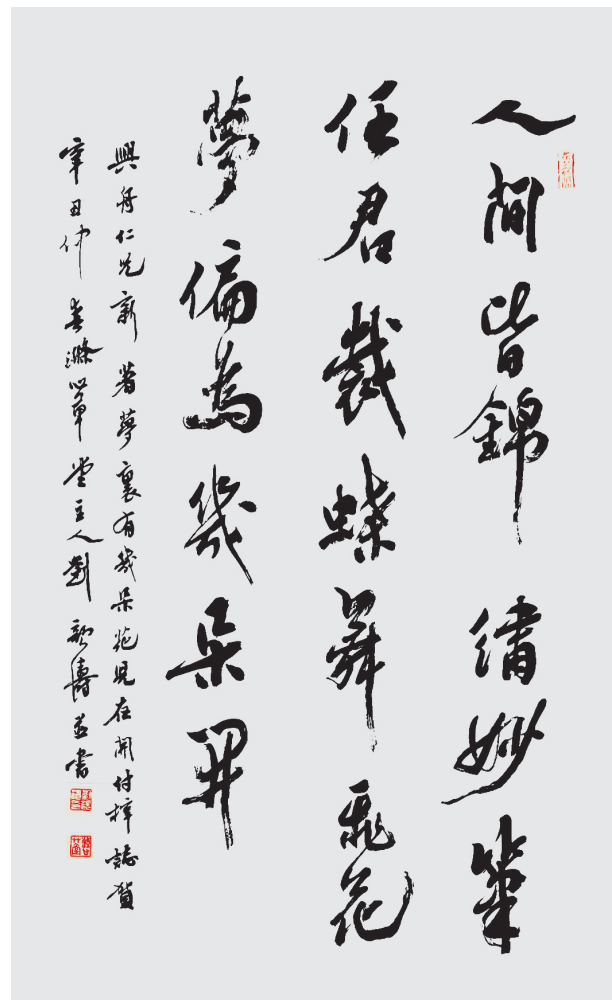 人間皆錦繡妙筆
任君裁蝶舞飛花
夢偏為幾朵開
興舟仁兄新著夢裏有幾朵花兒在開付梓誌賀
辛丑仲春草堂主人劉歌壽並書